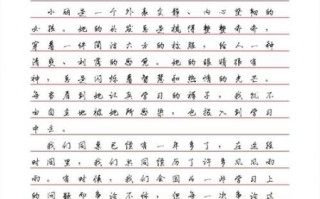 小丽是一个外表文静、内心坚韧的
女孩。她的长发总是梳得整整齐齐，
穿着一件简洁大方的校服，给人一种
清爽、利落的感觉。她的眼睛很有
神，总是闪烁着智慧和热情的光芒。
每当看到她认真学习的样子，我就不
由自主地被她所感染，也投入到学习
中去。
我们同桌已经有一年多了，在这段
时间里，我们共同经历了许多风风雨
雨。有时候，我们会因为一些学习上
的问题而争论不休，但每一次争论过